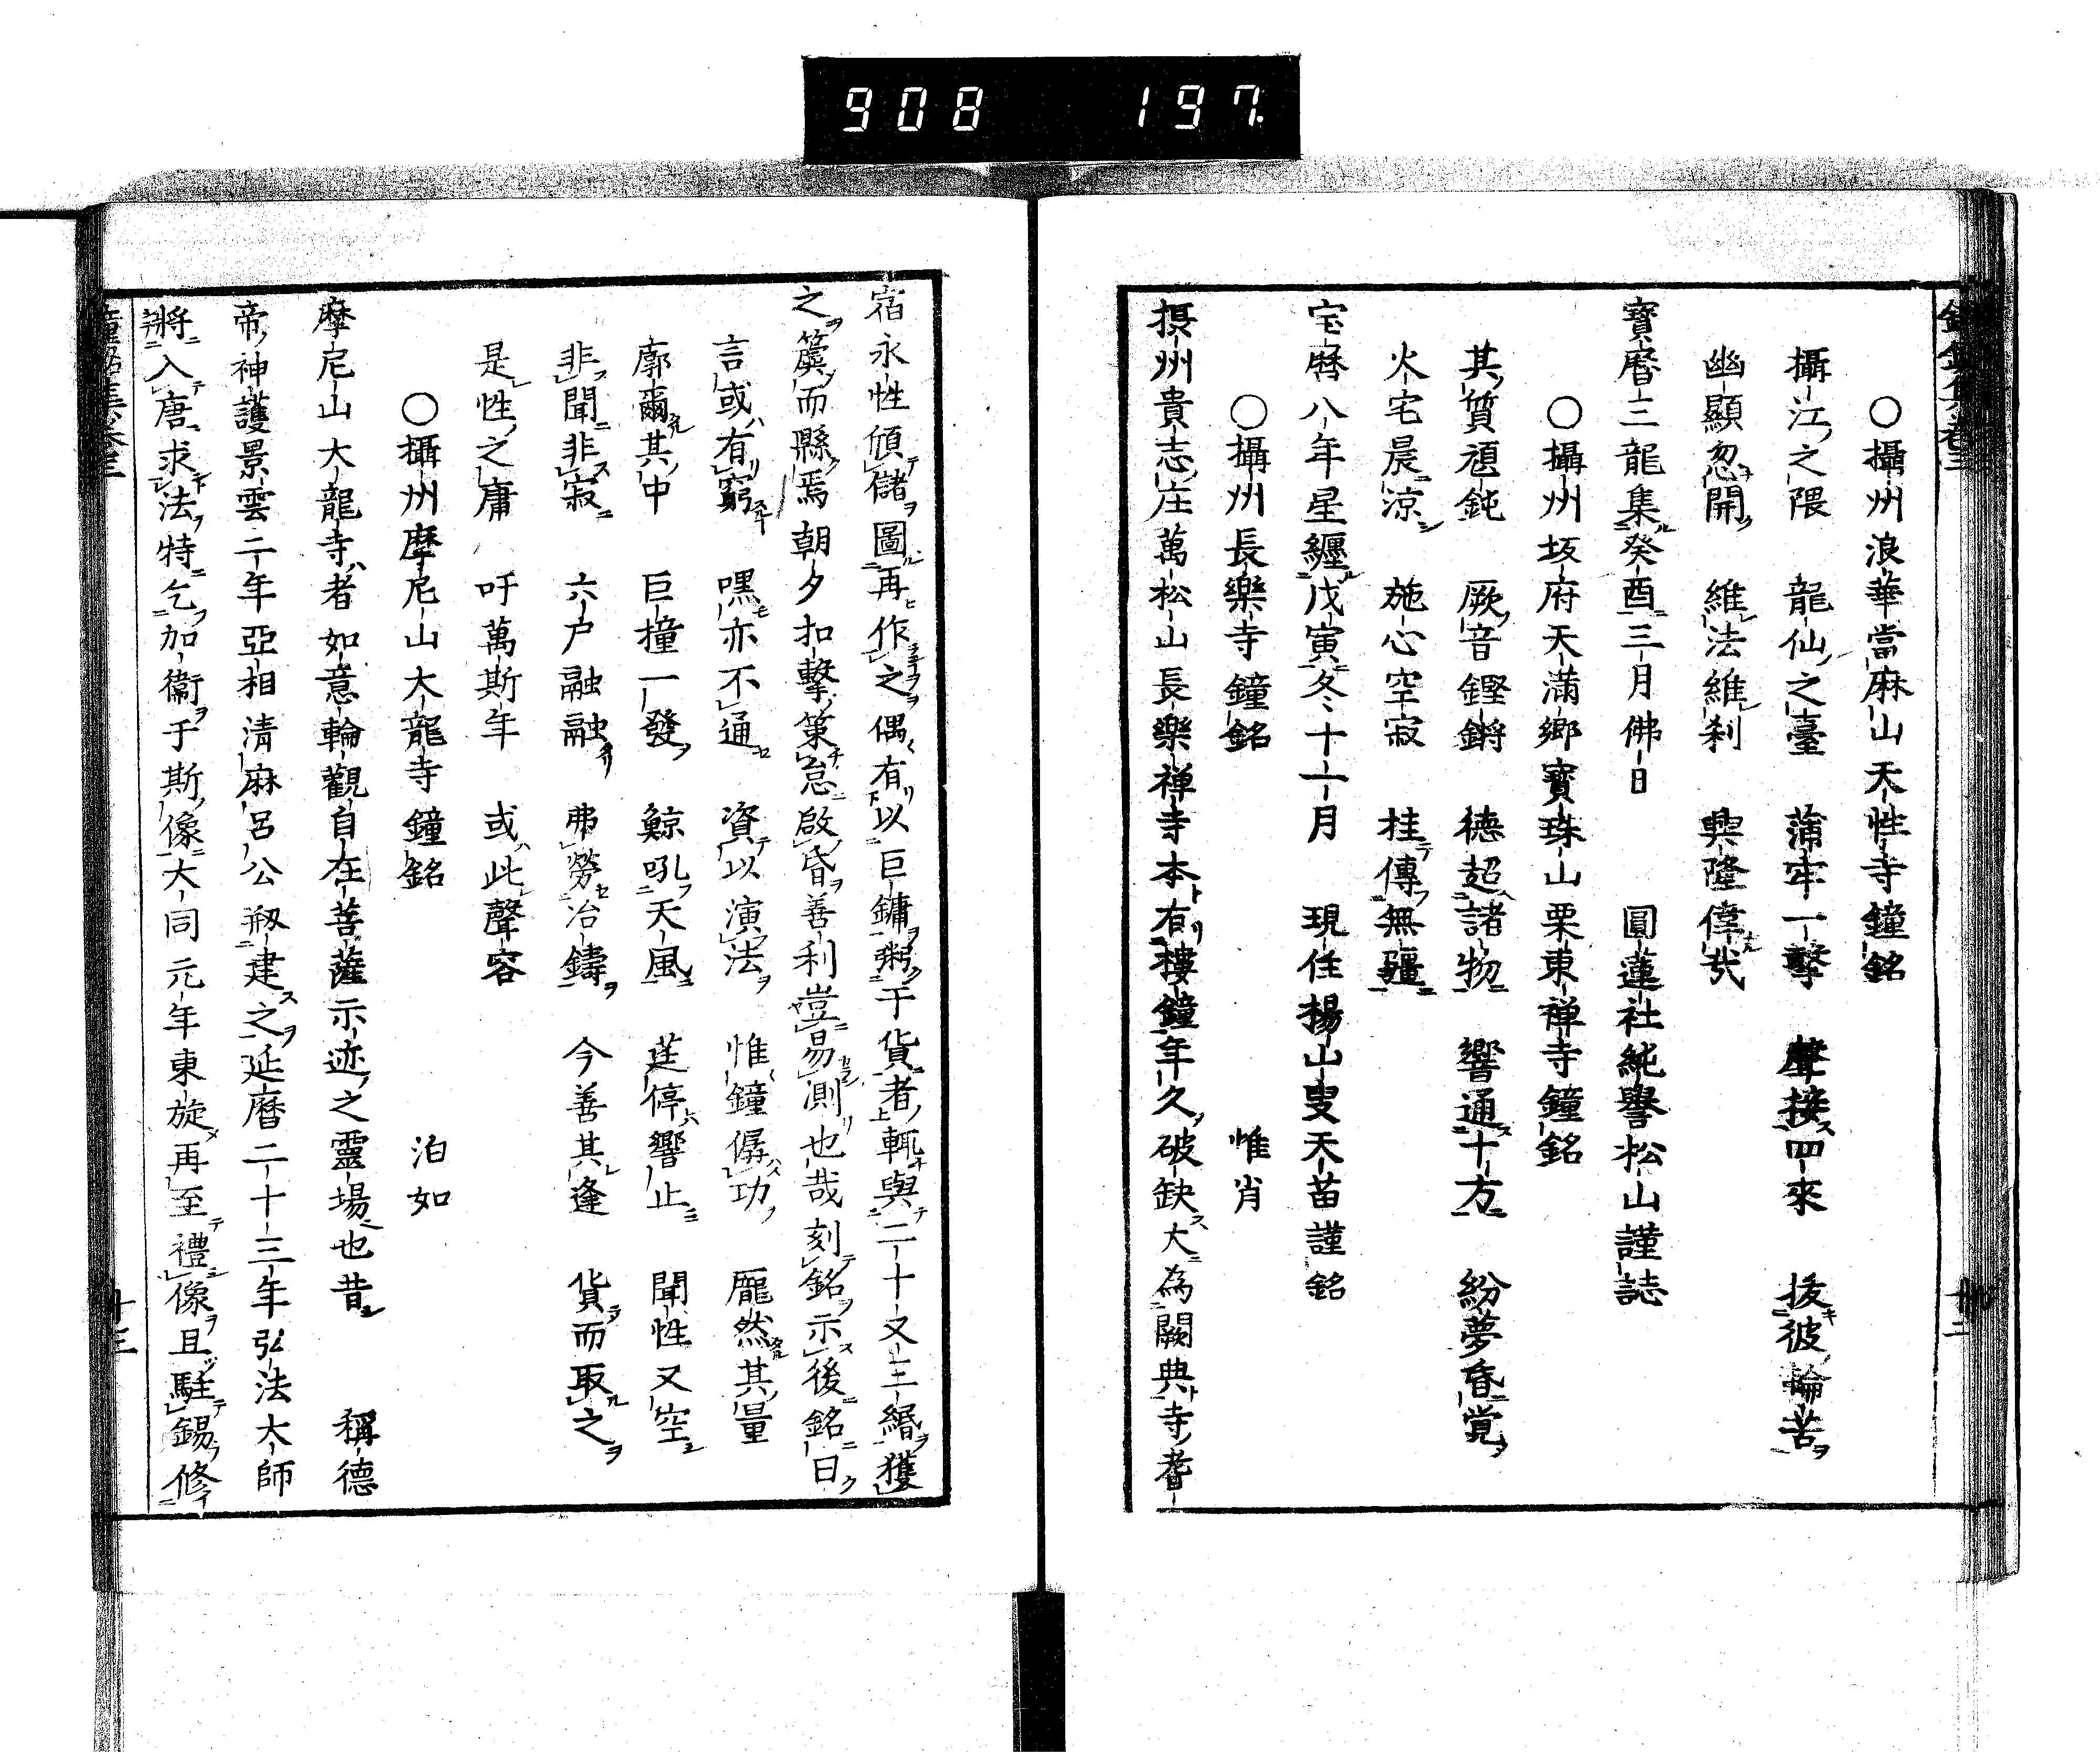 908 197
○攝州浪華當麻山天性寺鐘銘
攝江之隈 龍仙之臺 蒲牢一擊 聲接四來 拔彼輪苦
幽顯忽開 維法維刹 興隆偉哉
寳曆三龍集癸酉三月佛日 圓蓮社純譽松山謹誌
○攝州坂府天滿鄉寳珠山栗東禅寺鐘銘
其質頑鈍 厥音鏗鏘 德超諸物 響通十方 紛夢昏覚
火宅晨凉 施心空寂 桂傳無疆
宝曆八年星纒戊寅冬十一月 現住楊山叟天苗謹銘
○攝州長樂寺鐘銘 惟肖
摂州貴志庄萬松山長樂禅寺本有樓鐘年久破缺大為闕典寺耆
宿永性傾儲圖再作之偶有以巨鏞粥于貨者輒與二十又三緡獲
之簴而縣焉朝夕扣擊策怠啟昏善利豈易測也哉刻銘示後銘曰
言或有窮 嘿亦不通 資以演法 惟鐘僝功 厖然其量
廓爾其中 巨撞一發 鯨吼天風 莛停響止 聞性又空
非聞非寂 六户融融 弗勞冶鑄 今善其逢 貨而取之
是性之庸 吁萬斯年 或此聲容
○攝州摩尼山大龍寺鐘銘 泊如
摩尼山大龍寺者如意輪觀自在菩薩示迹之靈場也昔 稱德
帝神護景雲二年亞相清麻呂公剏建之延曆二十三年弘法大師
將入唐求法特乞加衞于斯像大同元年東旋再至禮像且駐錫修
鐘銘集卷三
十三